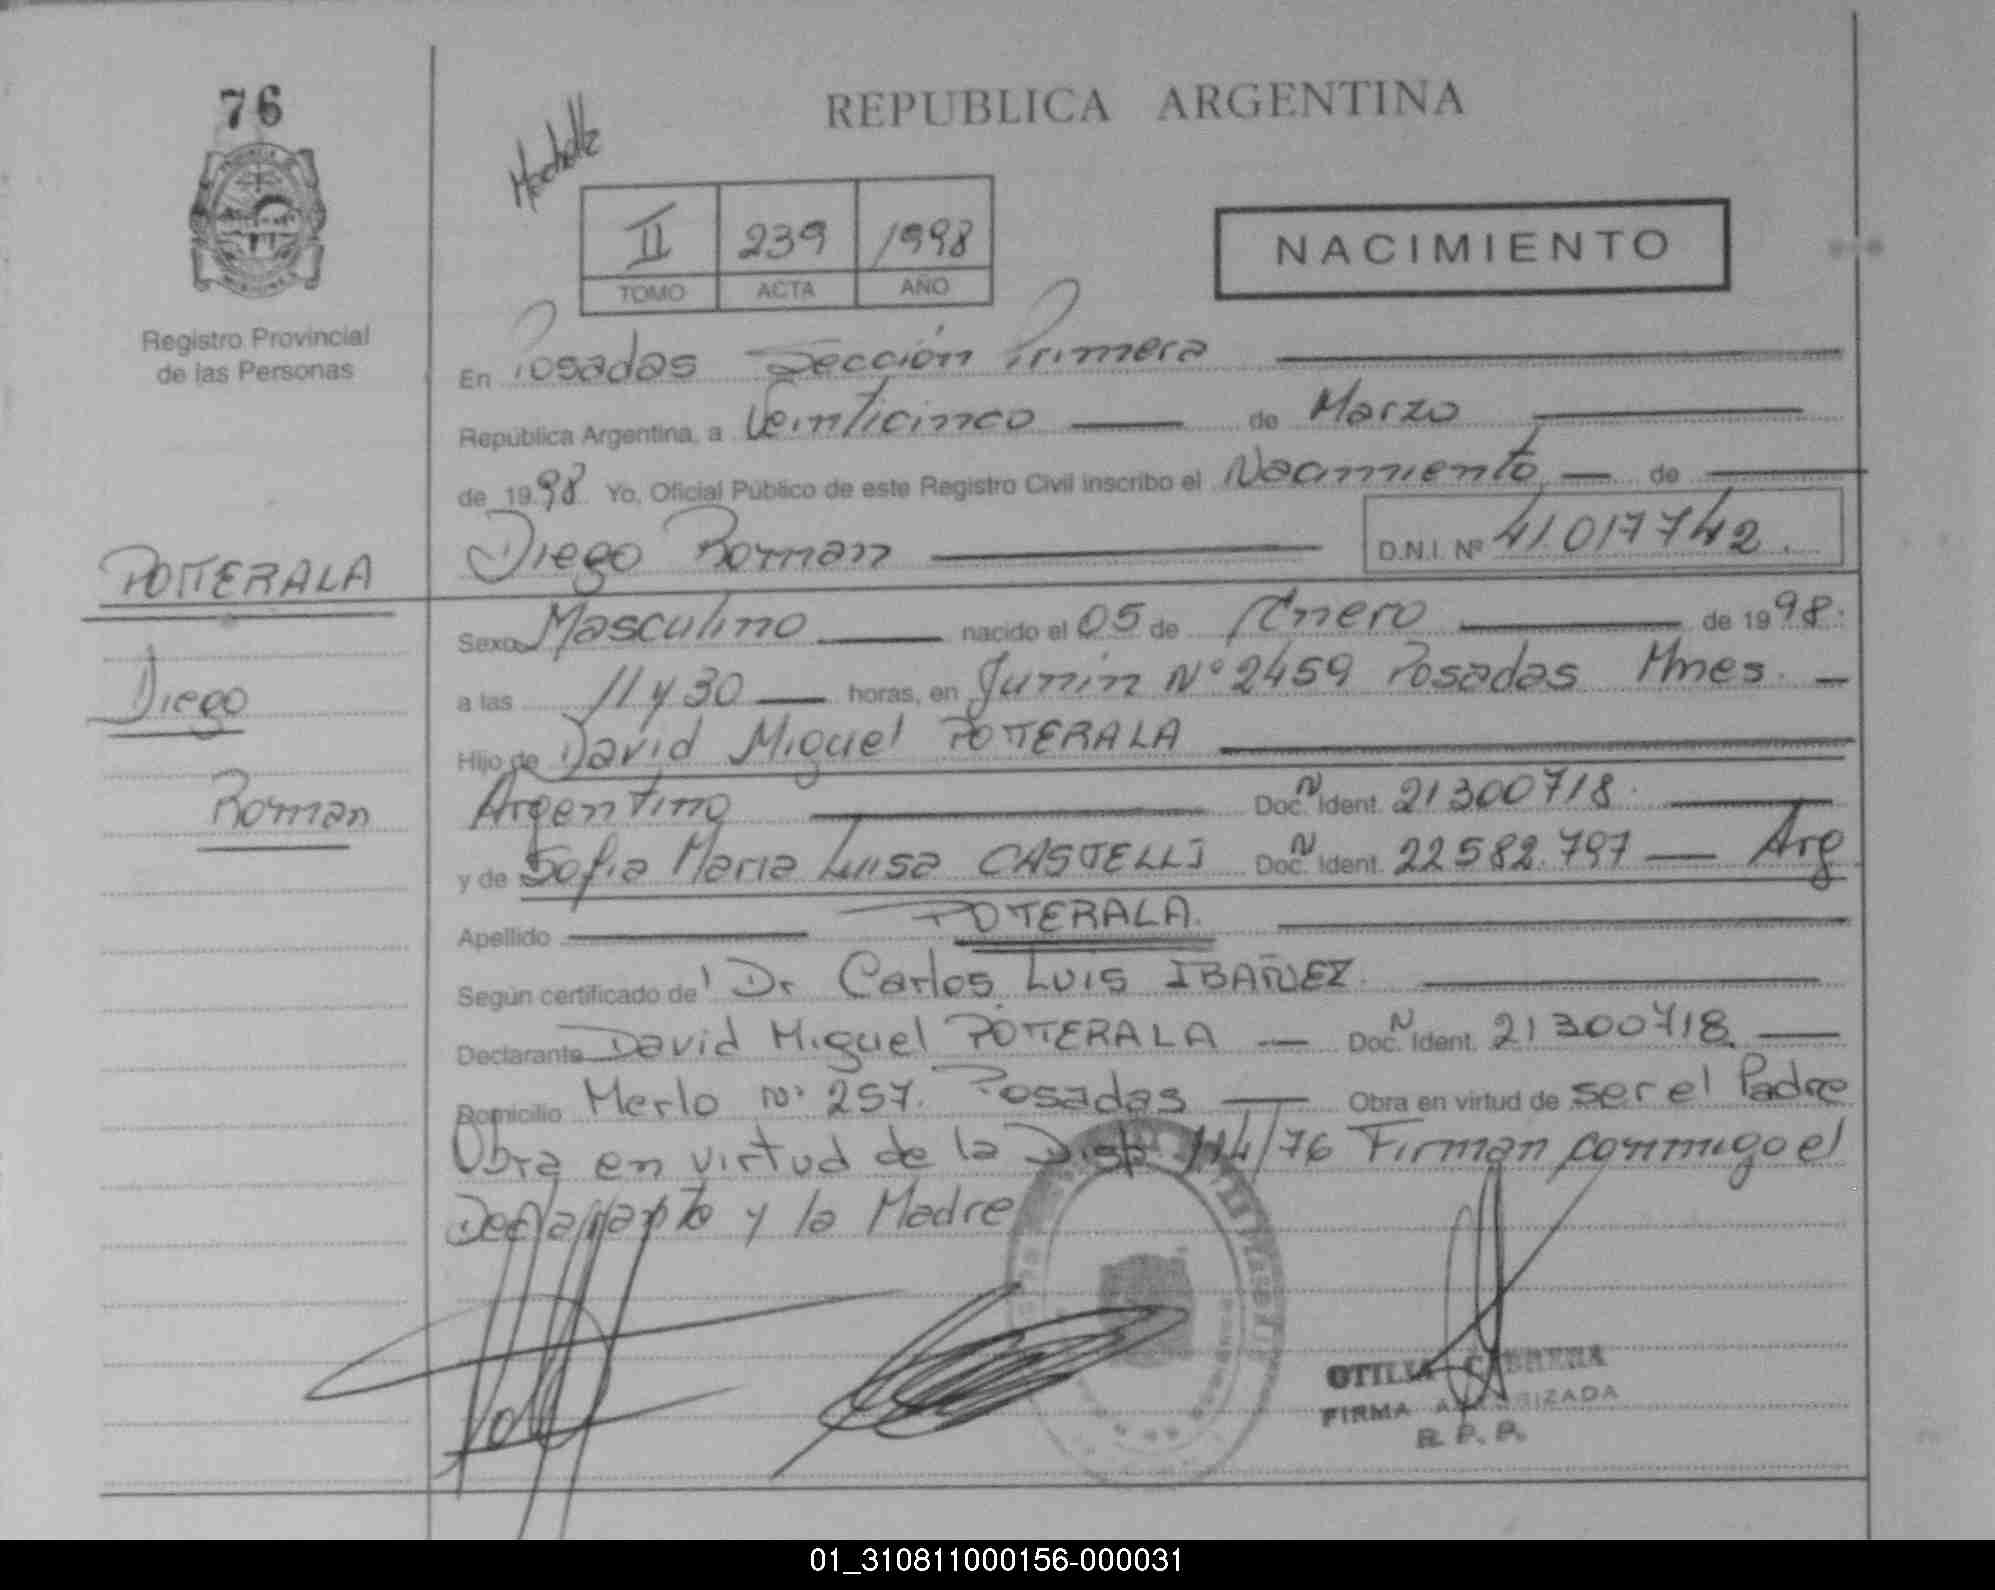 76
REPUBLICA ARGENTINA
II 239 1998
TOMO ACTA AÑO
NACIMIENTO
Registro Provincial
de las Personas
En Posadas Sección Primera
República Argentina, a Veinticinco de Marzo
de 1998 Yo, Oficial Público de este Registro Civil inscribo el Nacimiento de
Diego Roman D.N.I. Nº 41.017742.
POTTERALA
Diego
Roman
Sexo Masculino nacido el 05 de Enero de 1998.
a las 11 y 30 horas, en Junin Nº 2459 Posadas Mnes.
Hijo de David Miguel POTTERALA
Argentino Doc. N Ident. 21300718.
y de Sofia Maria Luisa CASTELLI Doc. N Ident. 22582.797 Arg
Apellido POTTERALA.
Según certificado del Dr Carlos Luis IBAÑEZ.
Declarante David Miguel POTTERALA Doc. N Ident. 21300718.
Domicilio Merlo Nº 257. Posadas Obra en virtud de ser el Padre
Obra en virtud de la Disp 114/76 Firman conmigo el
Declarante y la Madre
OTILIA CABRERA
FIRMA AUTORIZADA
R. P. P.
01_310811000156-000031